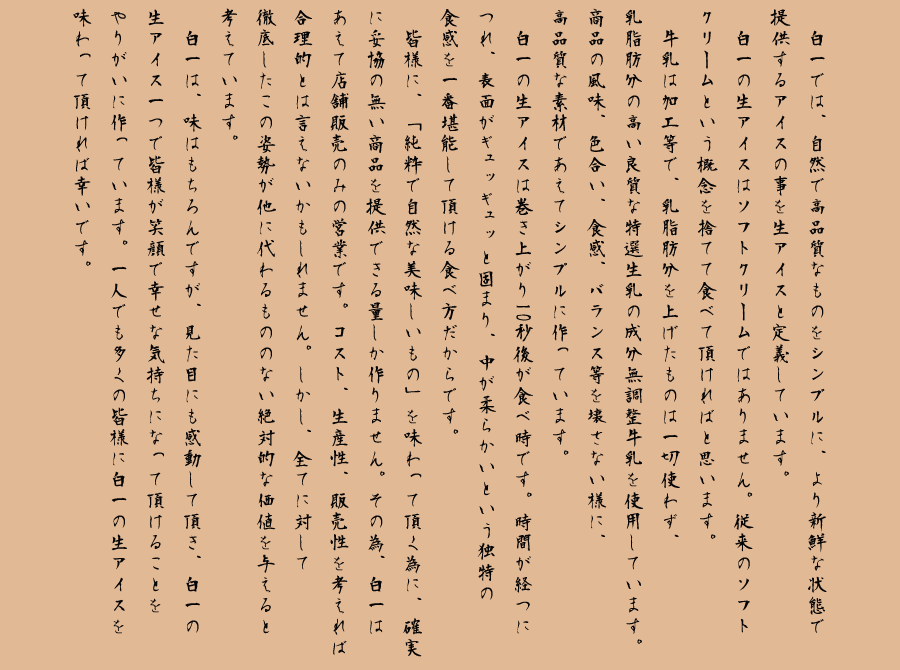 白一では、自然で高品質なものをシンプルに、より新鮮な状態で
提供するアイスの事を生アイスと定義しています。
白一の生アイスはソフトクリームではありません。従来のソフト
クリームという概念を捨てて食べて頂ければと思います。
牛乳は加工等で、乳脂肪分を上げたものは一切使わず、
乳脂肪分の高い良質な特選生乳の成分無調整牛乳を使用しています。
高品の風味、色合い、食感、バランス等を壊さない様に、
高品質な素材であえてシンプルに作っています。
白一の生アイスは巻き上がり一〇秒後が食べ時です。時間が経つに
つれ、表面がギュッギュッと固まり、中が柔らかいという独特の
食感を一番堪能して頂ける食べ方だからです。
皆様に、「純粋で自然な美味しいもの」を味わって頂く為に、確実
に妥協の無い商品を提供できる量しか作りません。その為、白一は
あえて店舗販売のみの営業です。コスト、生産性、販売性を考えれば
合理的とは言えないかもしれません。しかし、全てに対して
徹底したこの姿勢が他に代わるもののない絶対的な価値を与えると
考えています。
白一は、味はもちろんですが、見た目にも感動して頂き、白一の
生アイス一つで皆様が笑顔で幸せな気持ちになって頂けることを
やりがいに作っています。一人でも多くの皆様に白一の生アイスを
味わって頂ければ幸いです。